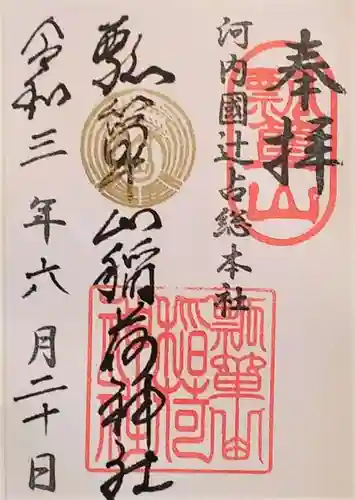 奉拝
瓢箪山
河内國辻占総本社
瓢箪山稲荷神社
瓢箪山稲荷神社
令和三年六月二十日